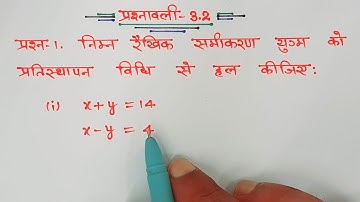 प्रश्नावली:- 3.2
प्रश्न-1. निम्न रैखिक समीकरण युग्म को
प्रतिस्थापन विधि से हल कीजिए:
(i) x+y = 14
x-y = 4